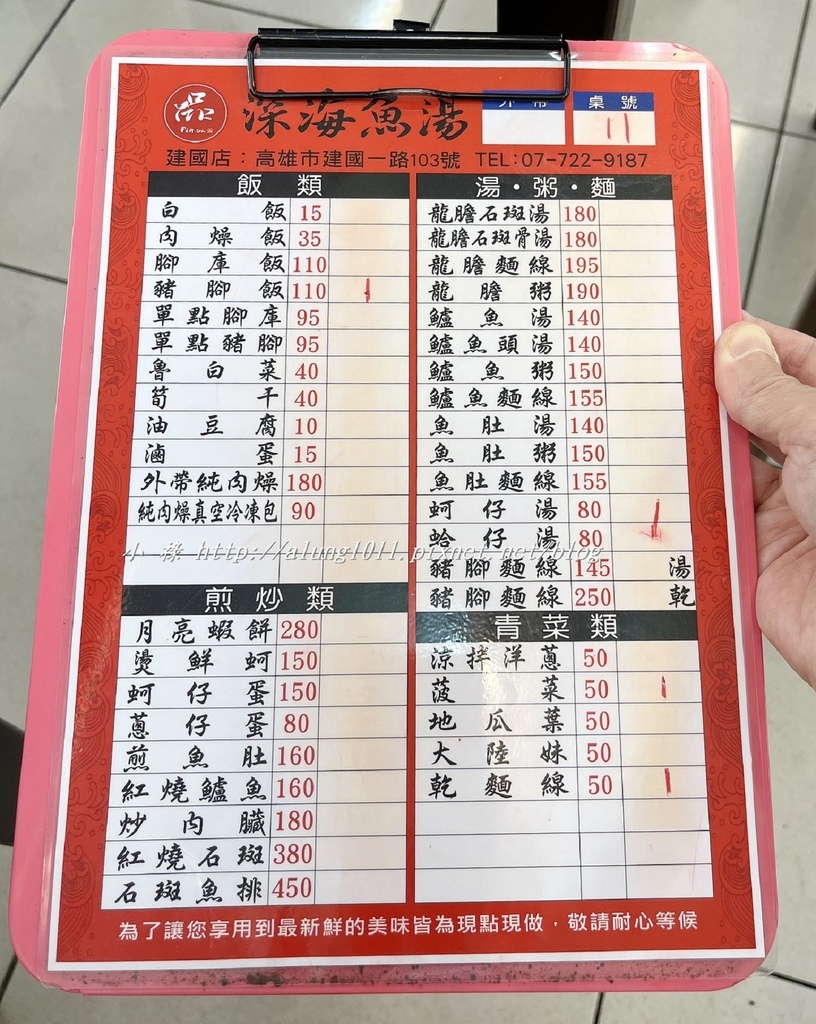 品
深海魚湯
外帶
桌號
11
建國店：高雄市建國一路103號 TEL:07-722-9187
飯類
白飯 15
肉燥飯 35
腳庫飯 110
豬腳飯 110
單點腳庫 95
單點豬腳 95
魯白菜 40
筍干 40
油豆腐 10
滷蛋 15
外帶純肉燥 180
純肉燥真空冷凍包 90
煎炒類
月亮蝦餅 280
燙鮮蚵 150
蚵仔蛋 150
蔥仔蛋 80
煎魚肚 160
紅燒鱸魚 160
炒內臟 180
紅燒石斑 380
石斑魚排 450
湯・粥・麵
龍膽石斑湯 180
龍膽石斑骨湯 180
龍膽麵線 195
龍膽粥 190
鱸魚湯 140
鱸魚頭湯 140
鱸魚粥 150
鱸魚麵線 155
魚肚湯 140
魚肚粥 150
魚肚麵線 155
蚵仔湯 80
蛤仔湯 80
豬腳麵線 145 湯
豬腳麵線 250 乾
青菜類
涼拌洋蔥 50
菠菜 50
地瓜葉 50
大陸妹 50
乾麵線 50
為了讓您享用到最新鮮的美味皆為現點現做，敬請耐心等候
小祿 http://alung1011.pixnet.net/blog